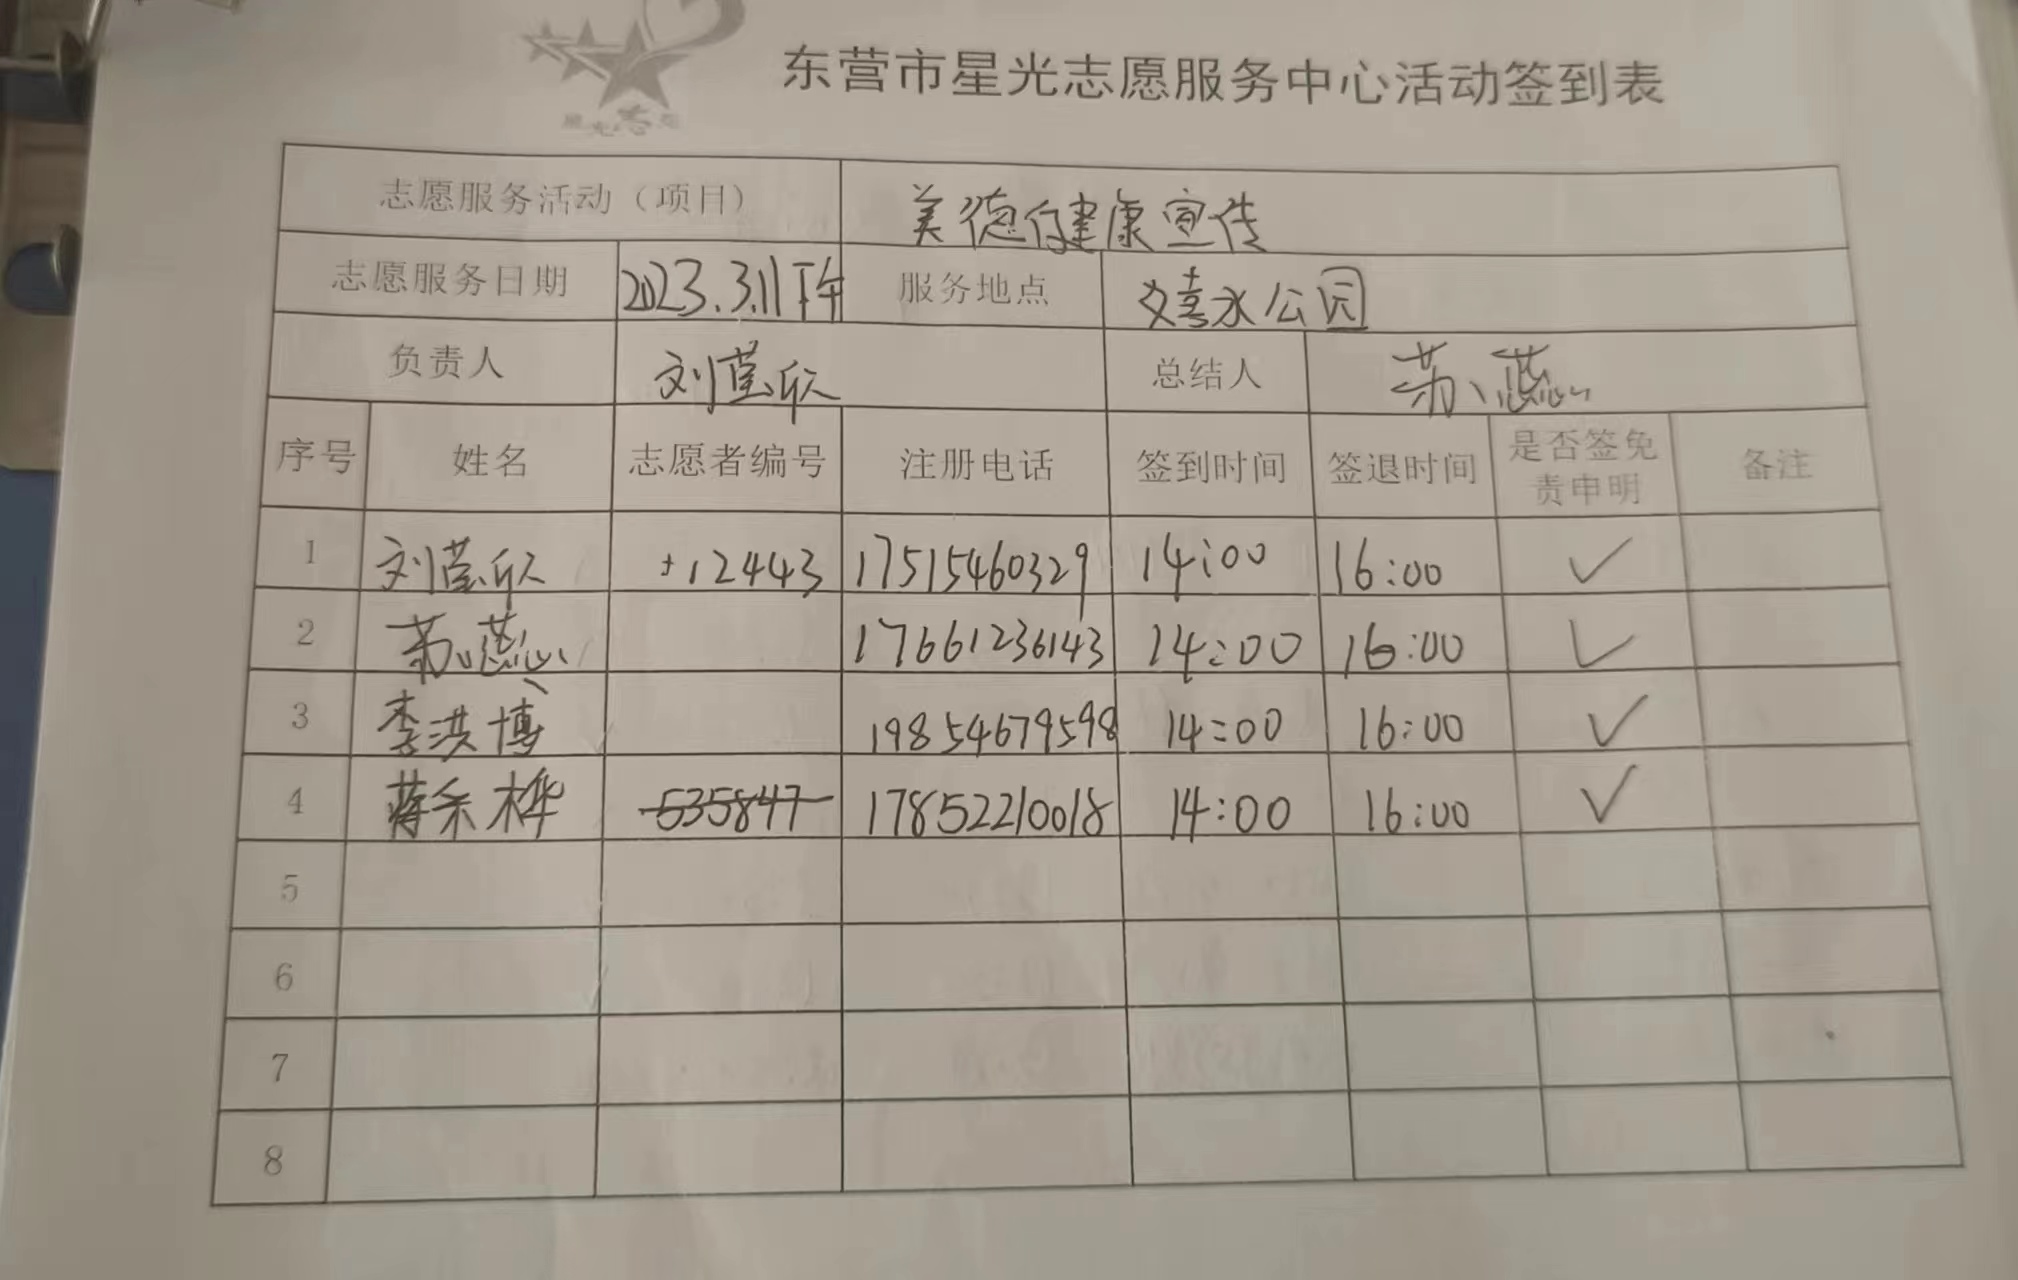 东营市星光志愿服务中心活动签到表
志愿服务活动（项目） 美德健康宣传
志愿服务日期 2023.3.11下午 服务地点 嬉水公园
负责人 刘莹欣 总结人 苏蕊
序号 姓名 志愿者编号 注册电话 签到时间 签退时间 是否签免责申明 备注
1 刘莹欣 12443 17515460329 14:00 16:00 ✓
2 苏蕊 17661236143 14:00 16:00 ✓
3 李洪博 19854679598 14:00 16:00 ✓
4 蒋禾桦 535847 17852210018 14:00 16:00 ✓
5
6
7
8